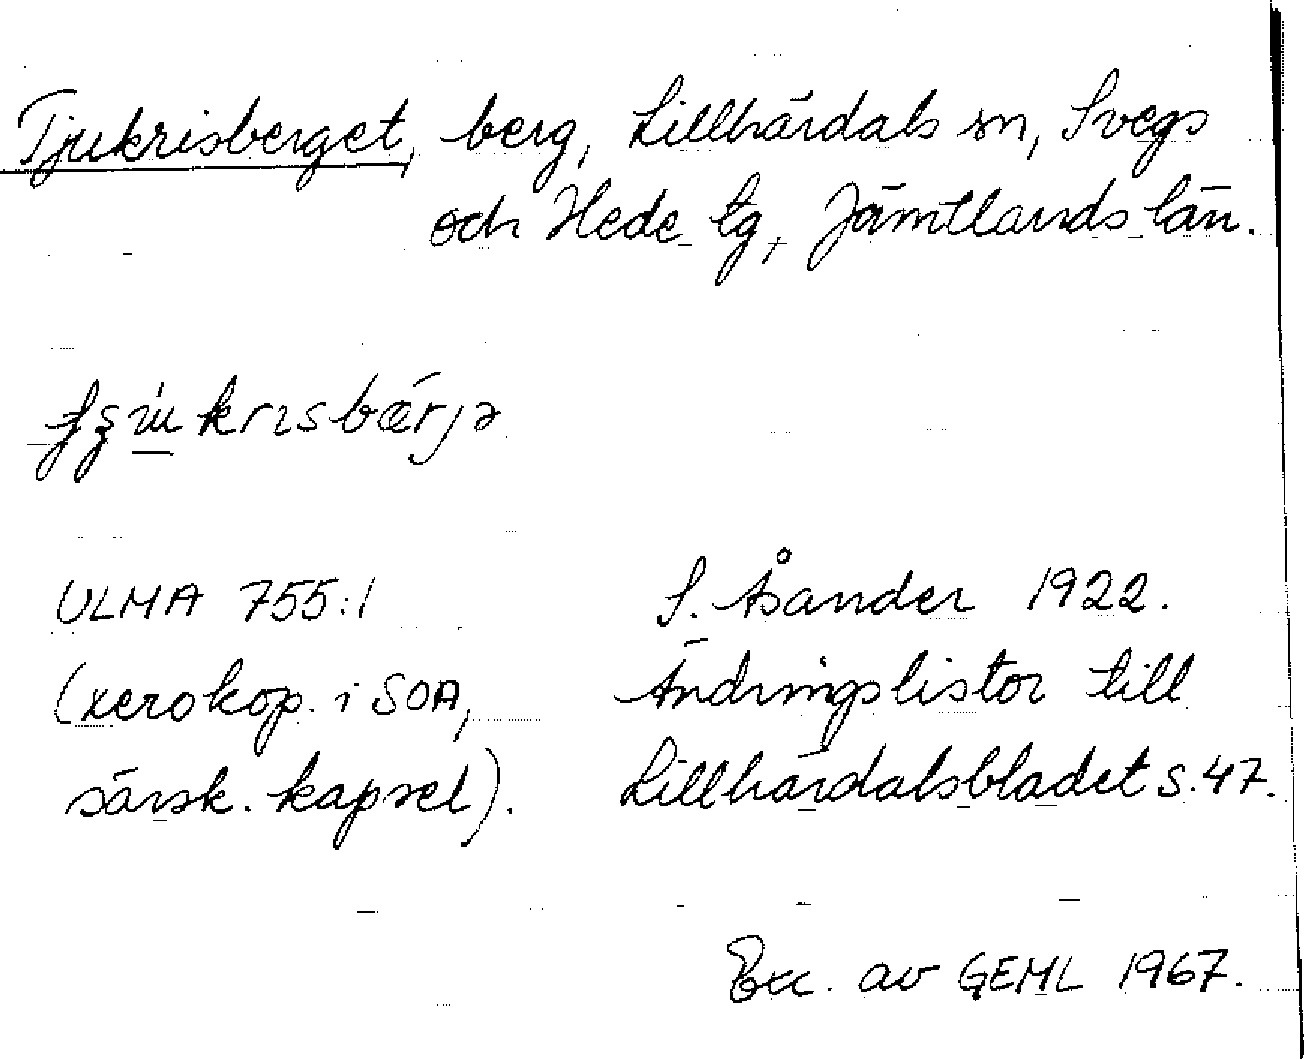 Tjukrisberget, berg, Lillhärdals sn, Svegs
och Hede tg, Jämtlands län.
ULMA 755:1
S. Åsander 1922.
(xerokop. i SOA,
Ändringslistor till
särsk. kapsel).
Lillhärdalsbladet s. 47.
Exc. av GEML 1967.